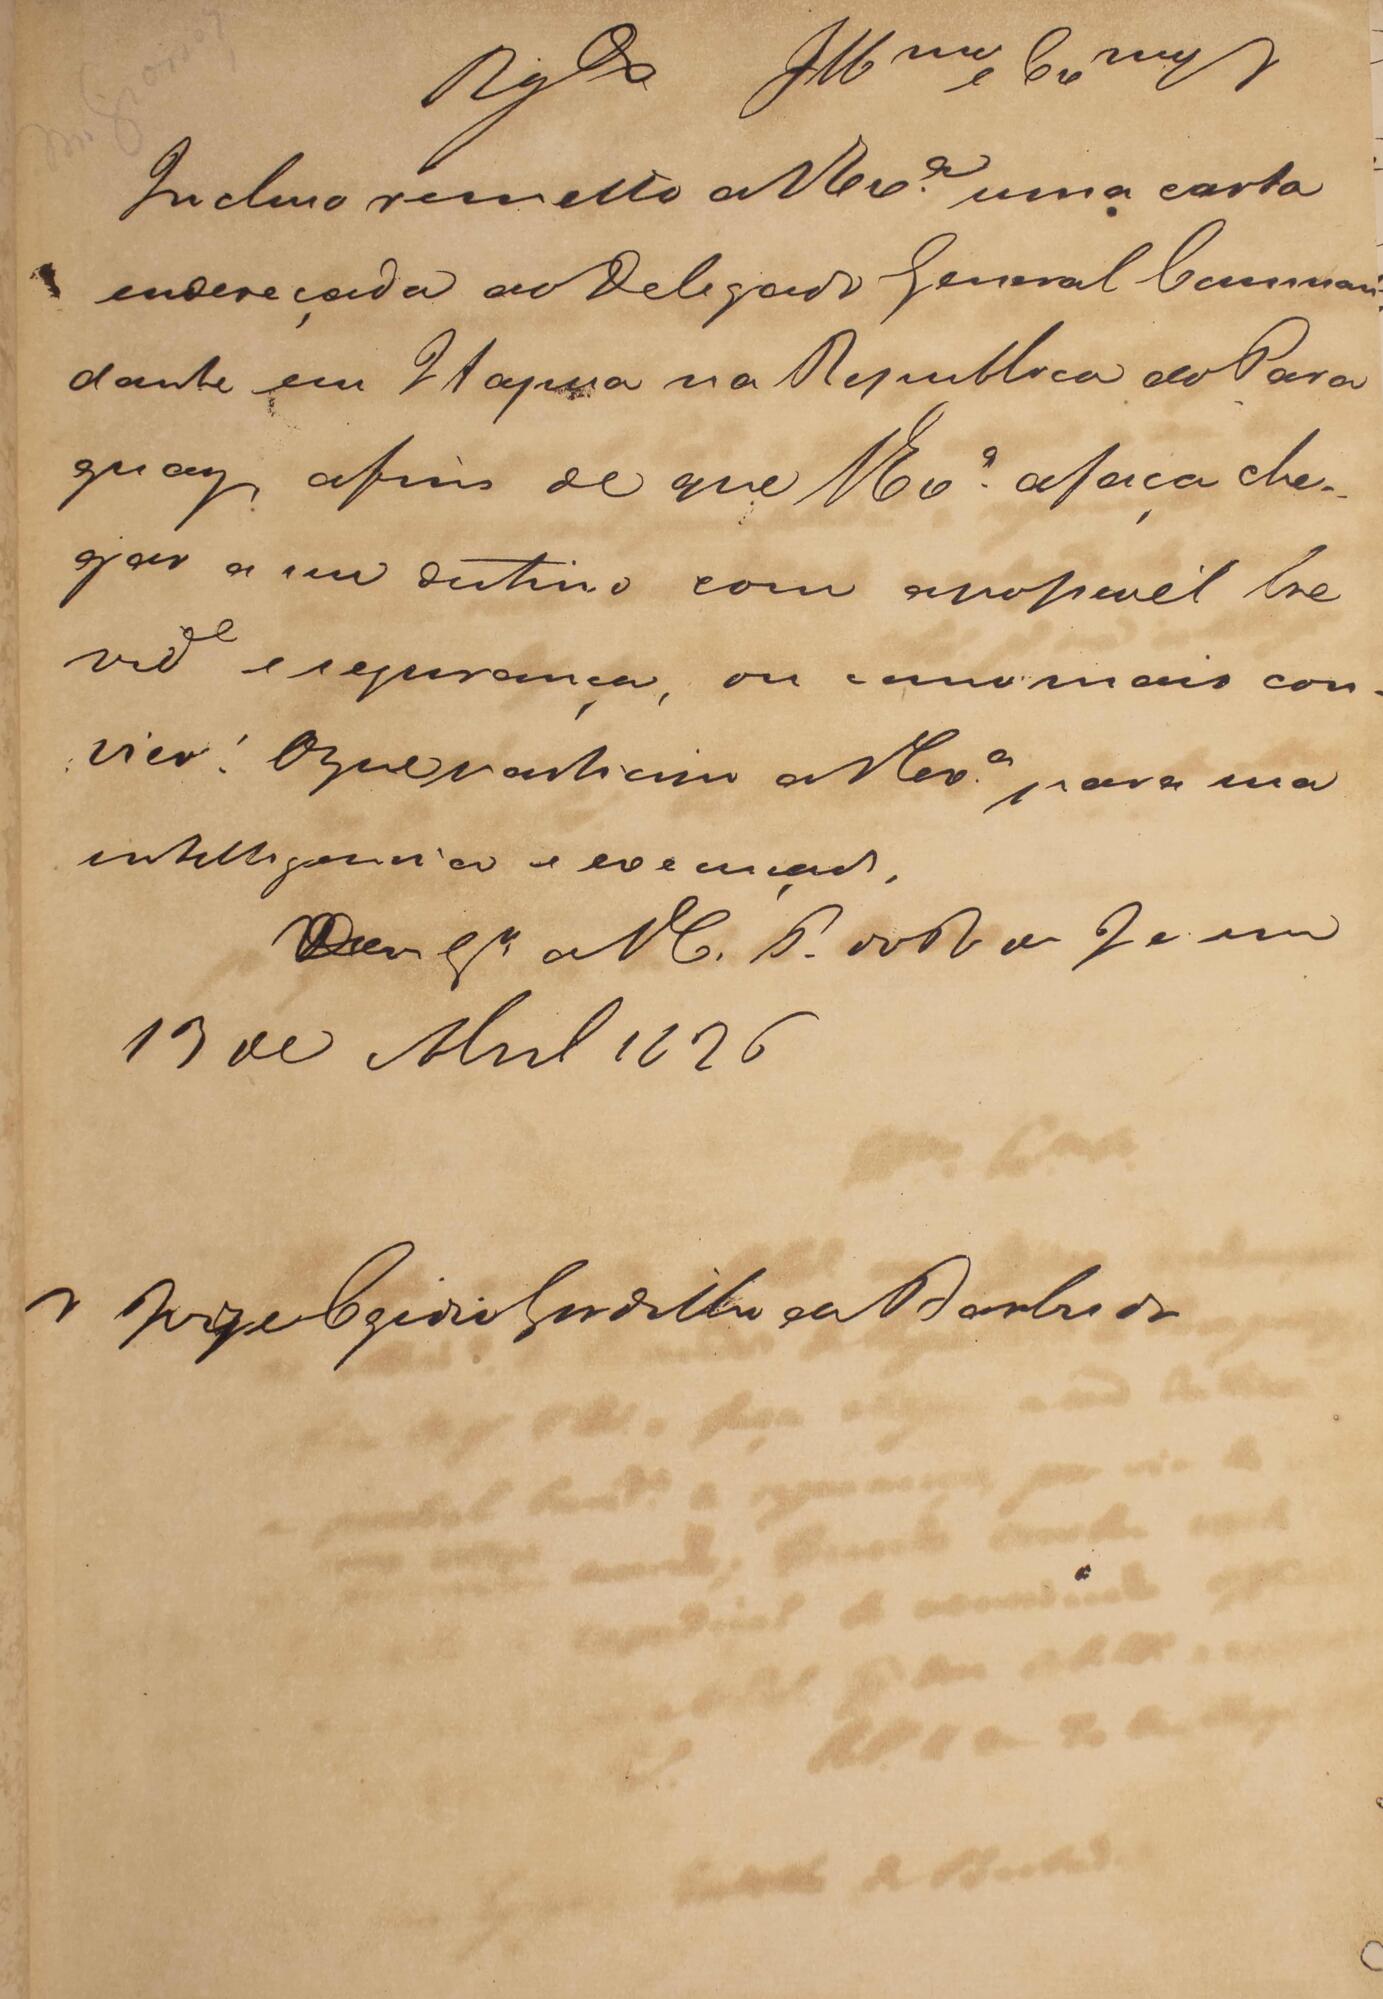 Rg.da Illmo e Exmo Sr
Incluso remetto a VEx.a uma carta
endereçada ao Delegado General Comman-
dante em Itapua na Republica do Para
guay, afim de que VEx.a a faça che-
gar a seu destino com a possivel bre
vid.e e segurança, ou como mais con-
vier. O que participo a VEx.a para sua
intelligencia e execução.
Deos G.e a VE. P.
13 de Abril 1826
Jorge Egidio Gordilho da Barbuda